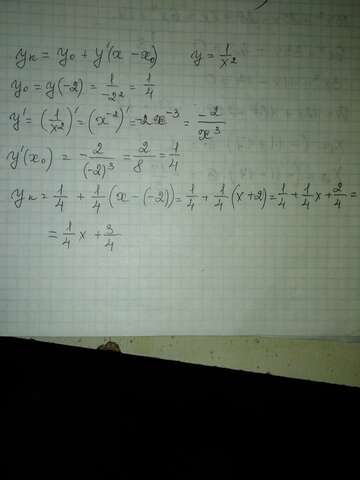 yк = y₀ + y'(x - x₀) y = 1/x²
y₀ = y(-2) = 1/-2² = 1/4
y' = (1/x²)' = (x⁻²)' = -2x⁻³ = -2/x³
y'(x₀) = -2/(-2)³ = 2/8 = 1/4
yк = 1/4 + 1/4(x - (-2)) = 1/4 + 1/4(x+2) = 1/4 + 1/4x + 2/4 =
= 1/4x + 3/4